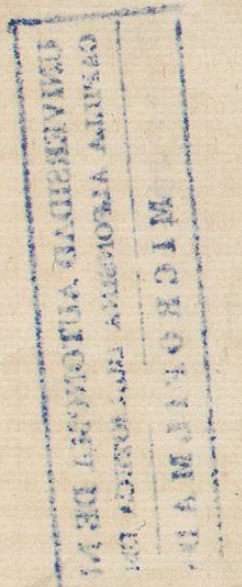 UNIVERSIDAD AUTONOMA DE N
CAPILLA ALFONSINA
MICROFILMAD